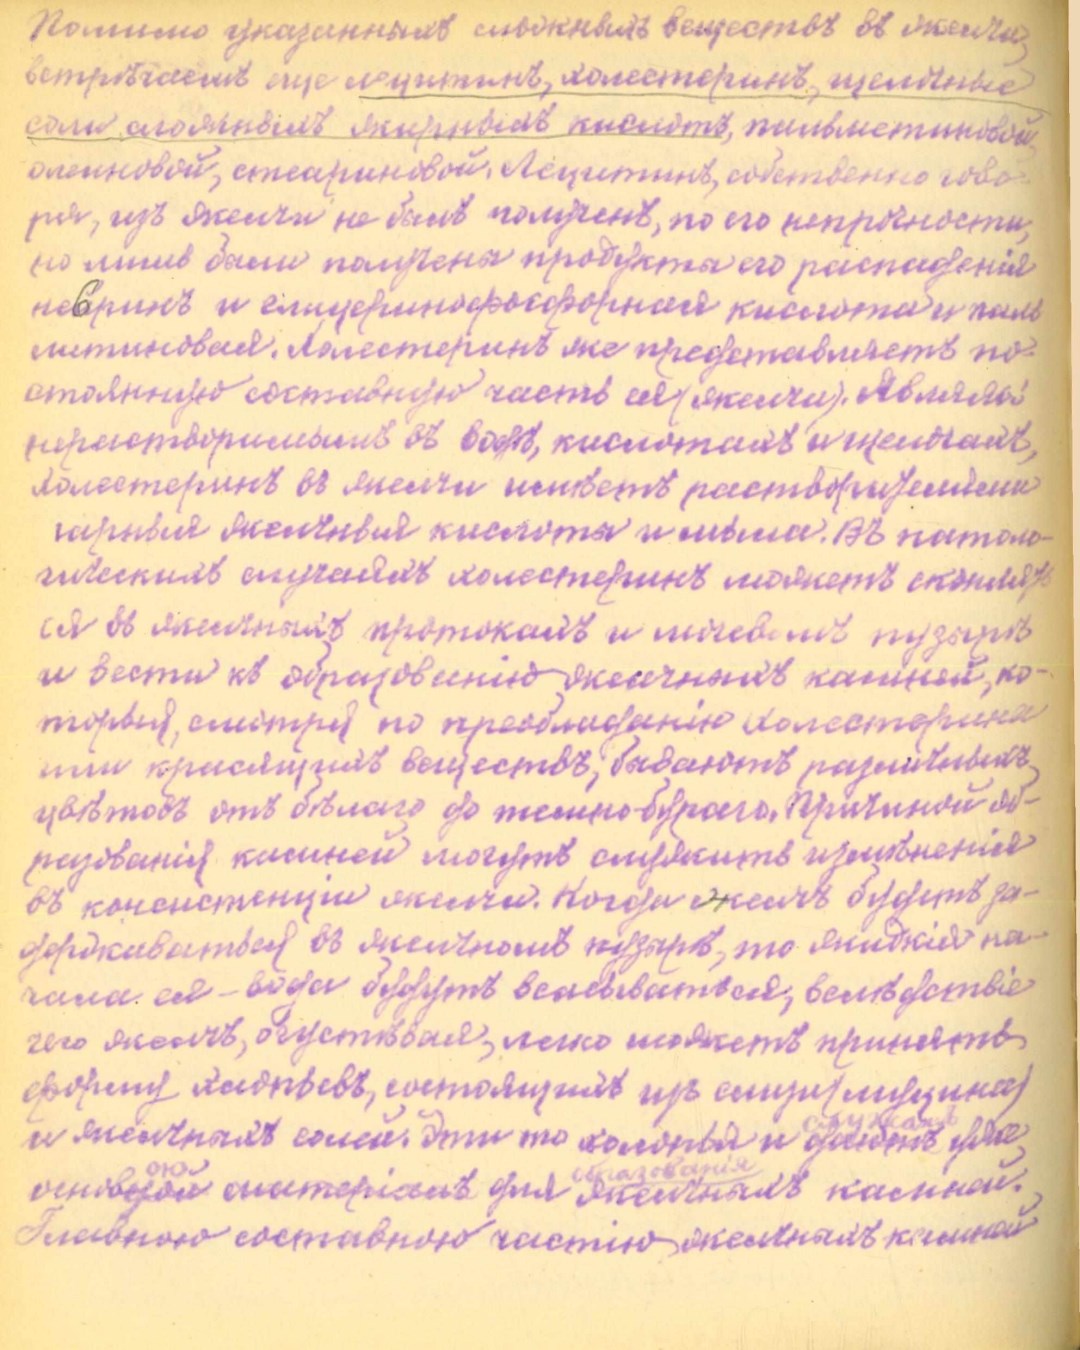 Помимо указанныхъ сложныхъ веществъ въ желчи,
встрѣчаемъ еще лецитинъ, холестеринъ, щелочные
соли сложныхъ жирныхъ кислотъ, пальмитиновой,
олеиновой, стеариновой. Лецитинъ, собственно гово-
ря, изъ желчи не былъ полученъ, по его непрочности,
но лишь были получены продукты его распаденія
невринъ и глицеринофосфорная кислота и паль
митиновая. Холестеринъ же представляетъ по-
стоянную составную часть ея (желчи). Являясь
нерастворимымъ въ водѣ, кислотахъ и щелочахъ,
холестеринъ въ желчи имѣетъ растворителями
парныя желчныя кислоты и мыла. Въ патоло-
гическихъ случаяхъ холестеринъ можетъ скоплять
ся въ желчныхъ протокахъ и пузырѣ
и вести къ образованію желчныхъ камней, ко-
торыя, смотря по преобладанію холестерина
или красящихъ веществъ, бываютъ различныхъ
цвѣтовъ отъ бѣлаго до темно-бураго. Причиной об-
разованія камней могутъ служить измѣненія
въ консистенціи желчи. Когда желчь будетъ за-
держиваться въ желчномъ пузырѣ, то жидкія на-
чала ея – вода будутъ всасываться, вслѣдствіе
чего желчь, сгустѣвая, легко можетъ принять
форму хлопьевъ, состоящихъ изъ слизи (муцина)
и желчныхъ солей. Эти то хлопья и служатъ
основою матеріаломъ для образованія желчныхъ камней.
Главною составною частію желчныхъ камней